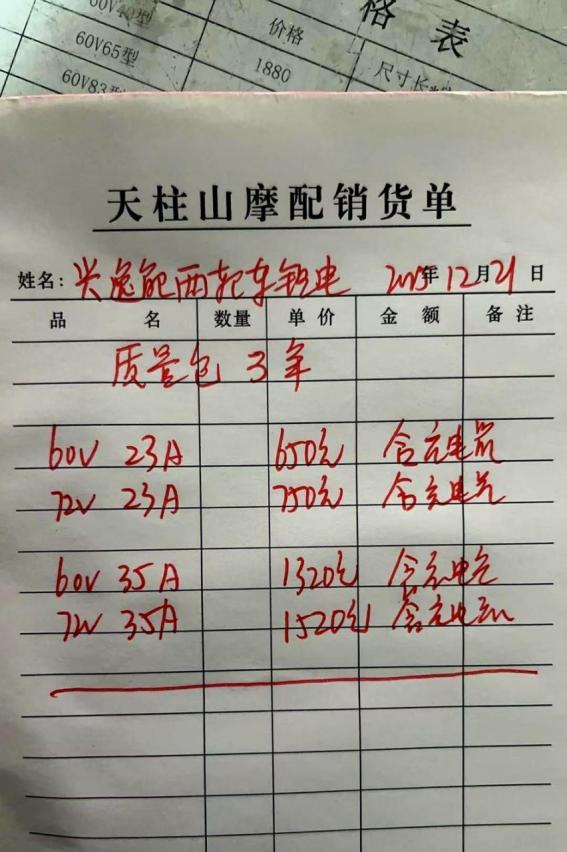 格 表
60V65型
价格
60V83型
1880
尺寸长
天柱山摩配销货单
姓名: 兴逸能两轮车锂电 年12月21日
品 名 数量 单价 金额 备注
质量包 3年
60V 23A 650元 含充电器
72V 23A 750元 含充电器
60V 35A 1320元 含充电器
72V 35A 1520元 含充电器